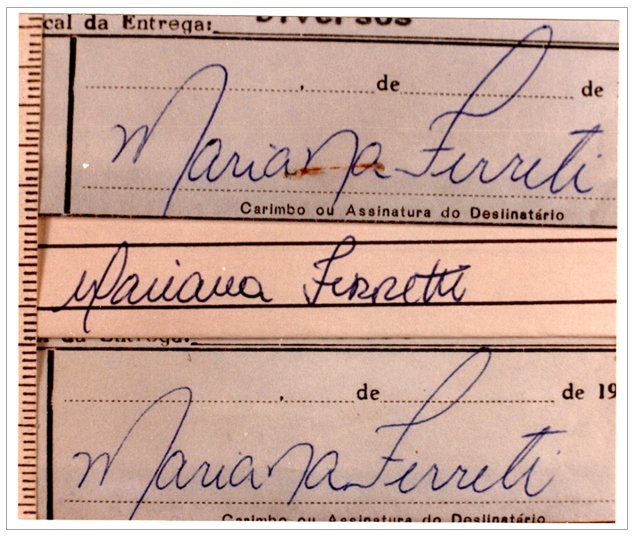 cal da Entrega: Diversos
, de de
Mariana Ferreti
Carimbo ou Assinatura do Desiinatário
Mariana Ferretti
da Entrega:
, de de 19
Mariana Ferreti
Carimbo ou Assinatura do Desiinatário